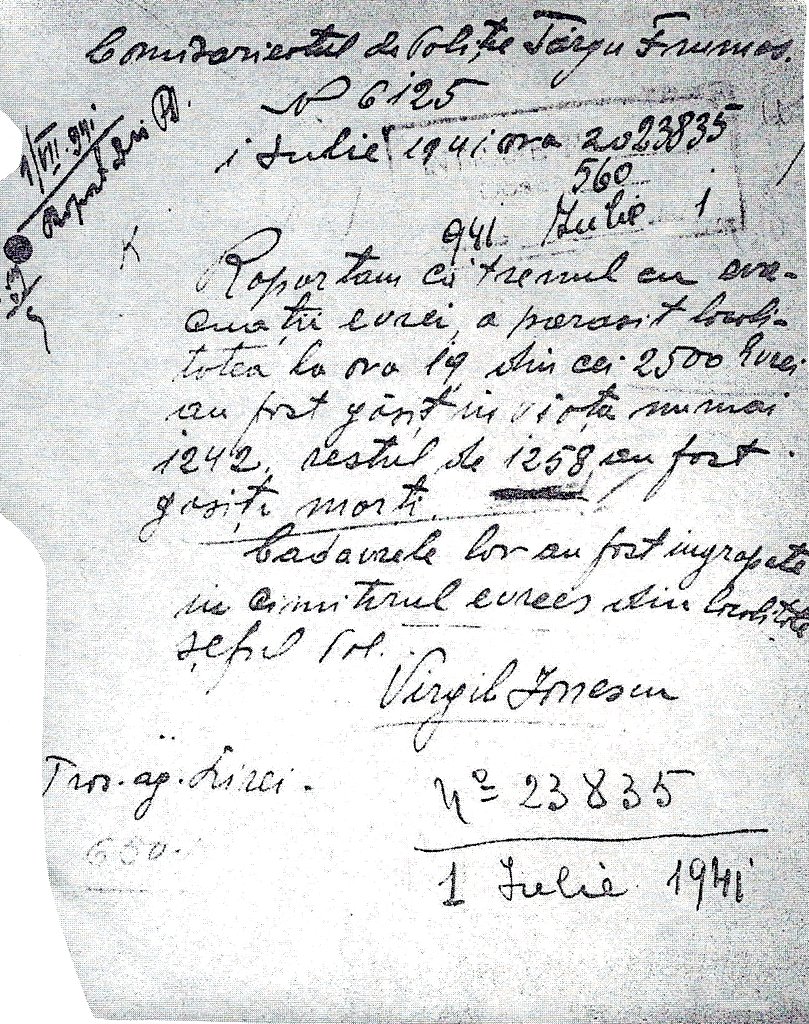 Comisariatul de Poliție Târgu Frumos.
N 6125
1 Iulie 1941 ora 20
23835
560
941 Iulie 1
1/VII.941
Raportam că trenul cu eva-
cuații evrei, a parasit locali-
tatea la ora 19 din cei 2500 Evrei
au fost găsiț in viață numai
1242, restul de 1258 au fost
gasiți morti.
Cadavrele lor au fost ingropate
in cimitirul evreesc din localitate
Șeful Pol.
Virgil Ionescu
Nº 23835
1 Iulie 1941